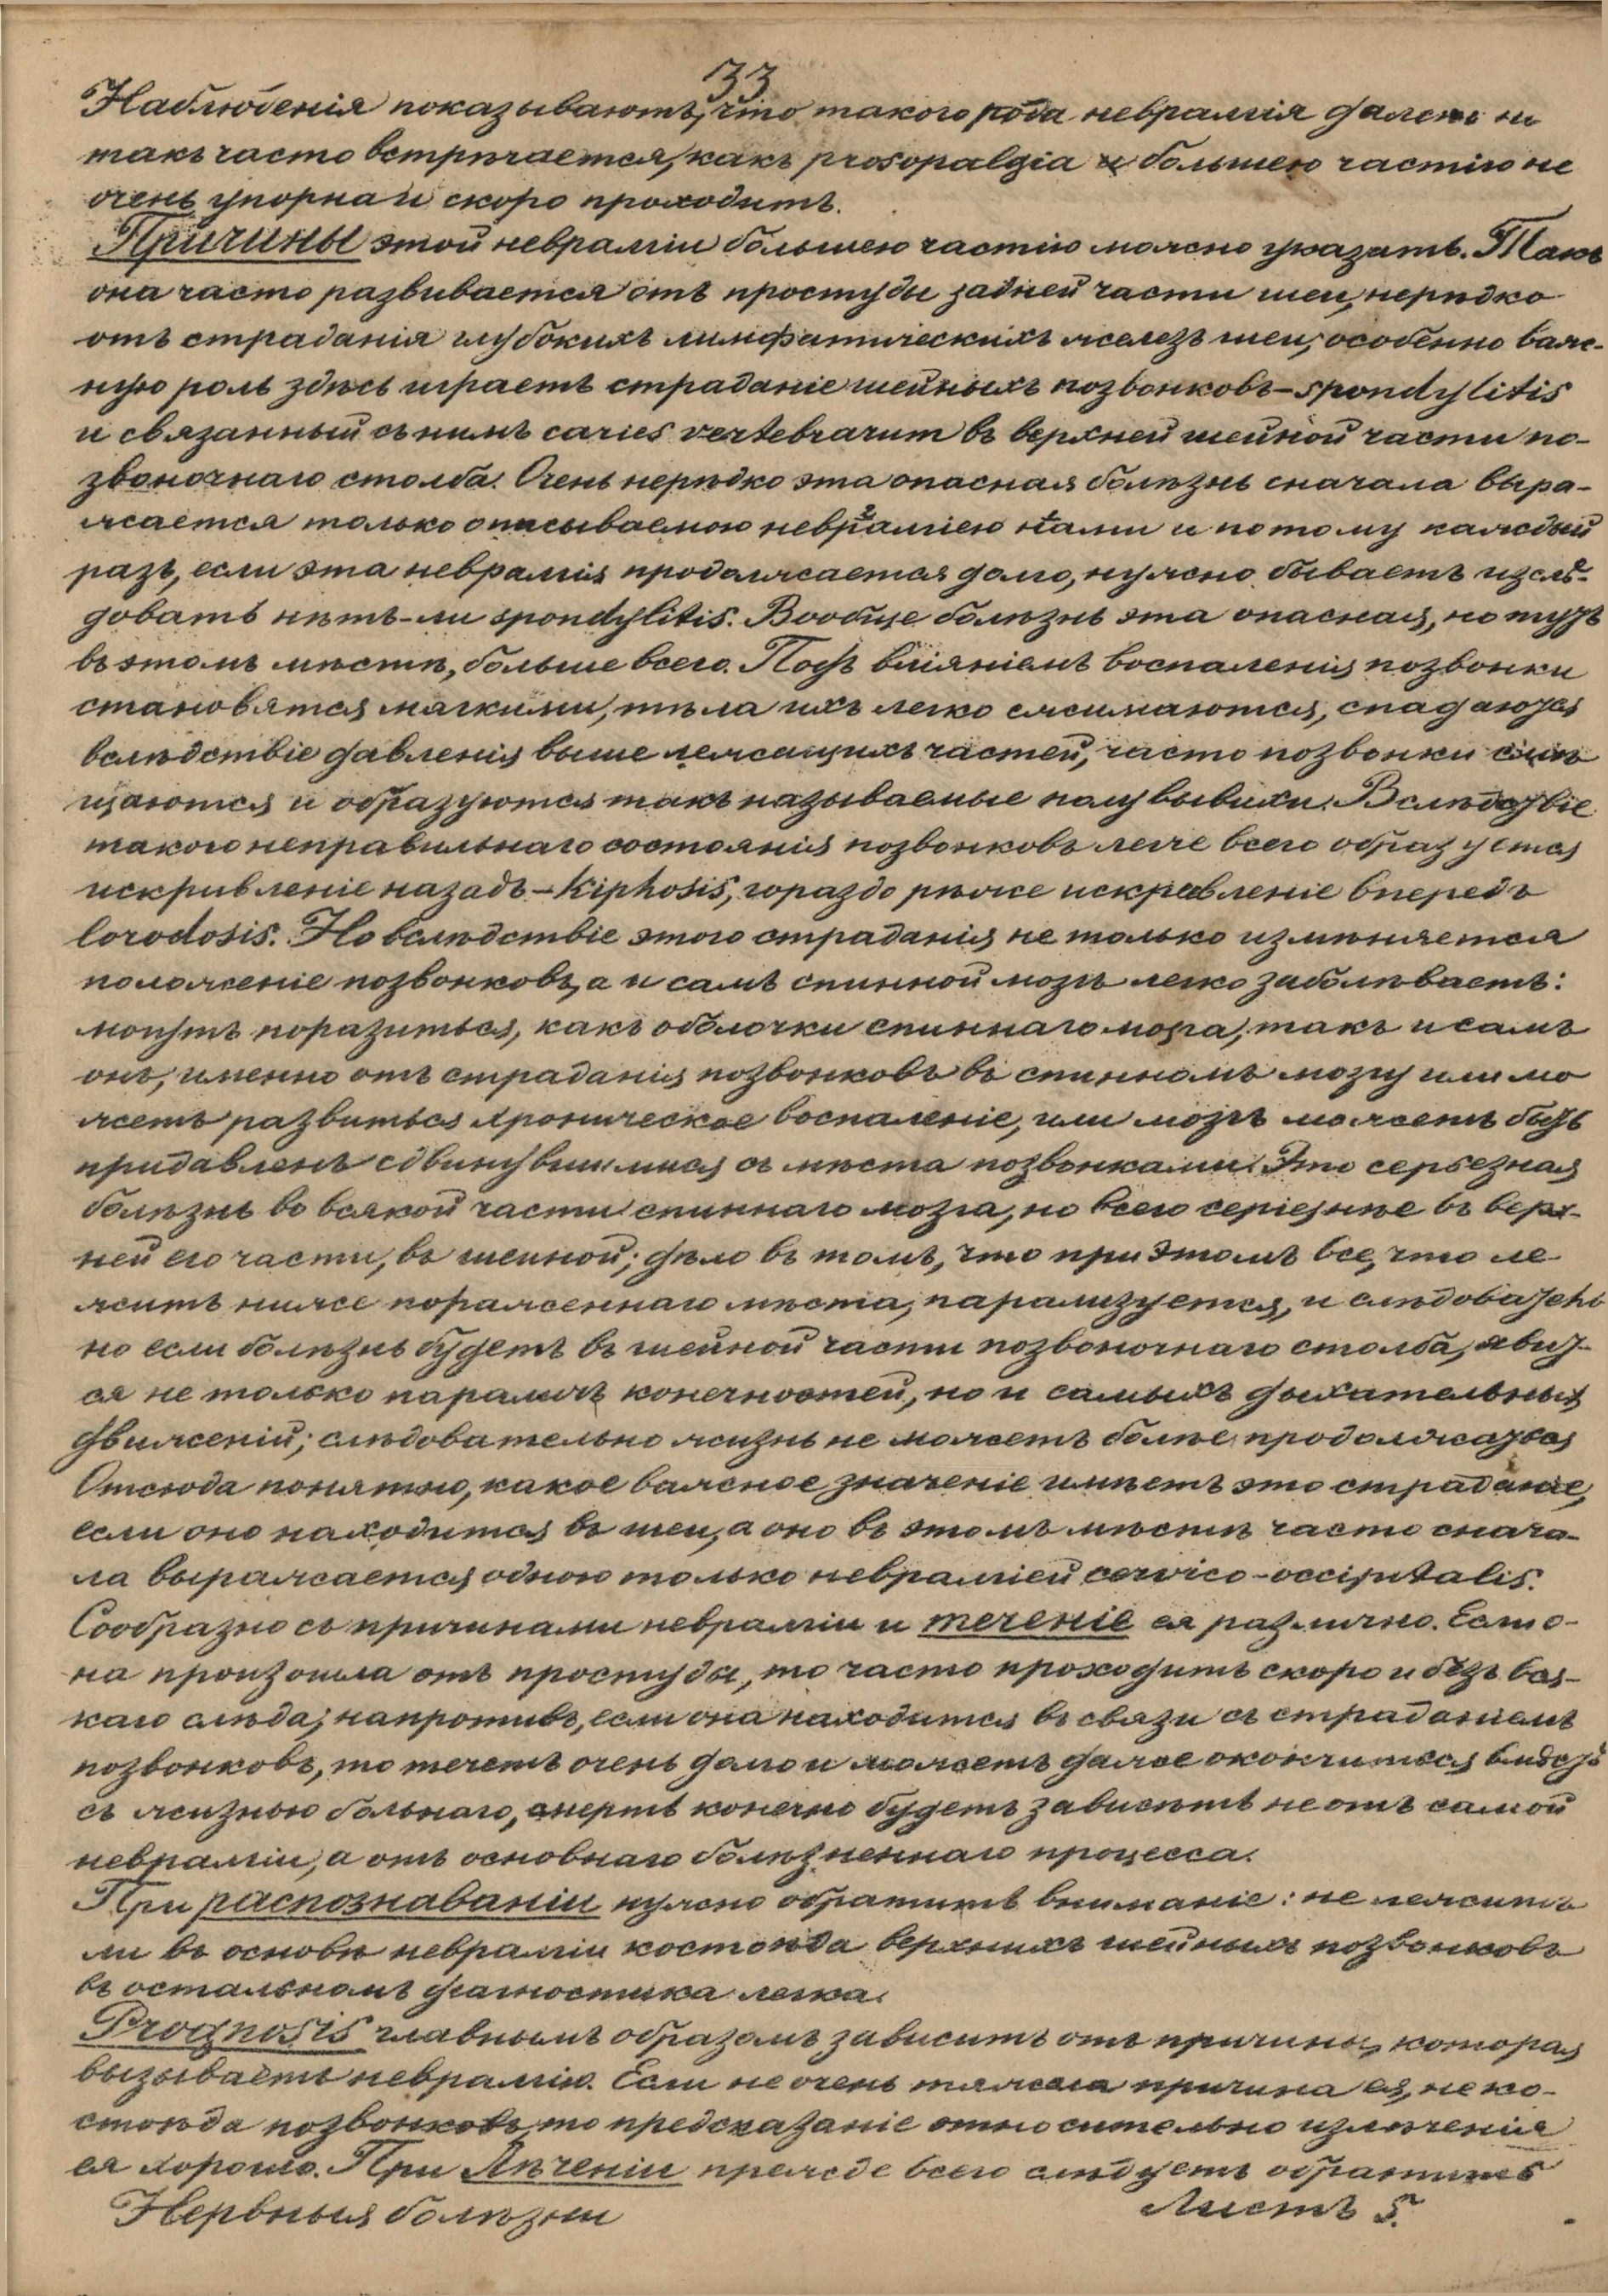 33
Наблюденія показываютъ, что такого рода невралгія далеко не
такъ часто встрѣчается, какъ prosopalgia и большею частію не
очень упорна и скоро проходитъ.
Причины этой невралгіи большею частію можно указать. Такъ
она часто развивается отъ простуды задней части шеи, нерѣдко
отъ страданія глубокихъ лимфатическихъ железъ шеи, особенно важ-
ную роль здѣсь играетъ страданіе шейныхъ позвонковъ – spondylitis
и связанный съ нимъ caries vertebrarum въ верхней шейной части по-
звоночнаго столба. Очень нерѣдко эта опасная болѣзнь сначала выра-
жается только описываемою невралгіею нами и потому каждый
разъ, если эта невралгія продолжается долго, нужно бываетъ изслѣ-
довать нѣтъ-ли spondylitis. Вообще болѣзнь эта опасная, но тутъ
въ этомъ мѣстѣ, больше всего. Подъ вліяніемъ воспаленія позвонки
становятся мягкими, тѣла ихъ легко сжимаются, спадаются
вслѣдствіе давленія выше лежащихъ частей, часто позвонки смѣ
щаются и образуются такъ называемые полувывихи. Вслѣдствіе
такого неправильнаго состоянія позвонковъ легче всего образуется
искривленіе назадъ – Kiphosis, гораздо рѣже искривленіе впередъ
lorodosis. Но вслѣдствіе этого страданія не только измѣняется
положеніе позвонковъ, а и самъ спинной мозгъ легко заболѣваетъ:
могутъ поразиться, какъ оболочки спиннаго мозга, такъ и самъ
онъ, именно отъ страданія позвонковъ въ спинномъ мозгу или мо
жетъ развиться хроническое воспаленіе, или мозгъ можетъ быть
придавленъ сдвинувшимися съ мѣста позвонками. Это серьезная
болѣзнь во всякой части спиннаго мозга, но всего серіезнѣе въ верх-
ней его части, въ шейной; дѣло въ томъ, что при этомъ все, что ле
житъ ниже пораженнаго мѣста, парализуется, и слѣдователь
но если болѣзнь будетъ въ шейной части позвоночнаго столба, явит-
ся не только параличъ конечностей, но и самыхъ дыхательныхъ
движеній; слѣдовательно жизнь не можетъ болѣе продолжаться
Отсюда понятно, какое важное значеніе имѣетъ это страданіе,
если оно находится въ шеи, а оно въ этомъ мѣстѣ часто снача-
ла выражается одною только невралгіей cervico-occipitalis.
Сообразно съ причинами невралгіи и теченіе ея различно. Если о-
на произошла отъ простуды, то часто проходитъ скоро и безъ вся-
каго слѣда; напротивъ, если она находится въ связи съ страданіемъ
позвонковъ, то течетъ очень долго и можетъ даже окончиться вмѣстѣ
съ жизнью больнаго, смерть конечно будетъ зависѣть не отъ самой
невралгіи, а отъ основнаго болѣзненнаго процесса.
При распознаваніи нужно обратить вниманіе: не лежитъ
ли въ основѣ невралгіи костоѣда верхнихъ шейныхъ позвонковъ
въ остальномъ діагностика легка.
Prognosis главнымъ образомъ зависитъ отъ причины, которая
вызываетъ невралгію. Если не очень тяжела причина ея, не ко-
стоѣда позвонковъ, то предсказаніе относительно излѣченія
ея хорошо. При Лѣченіи прежде всего слѣдуетъ обратить
Нервныя болѣзни Листъ 5.